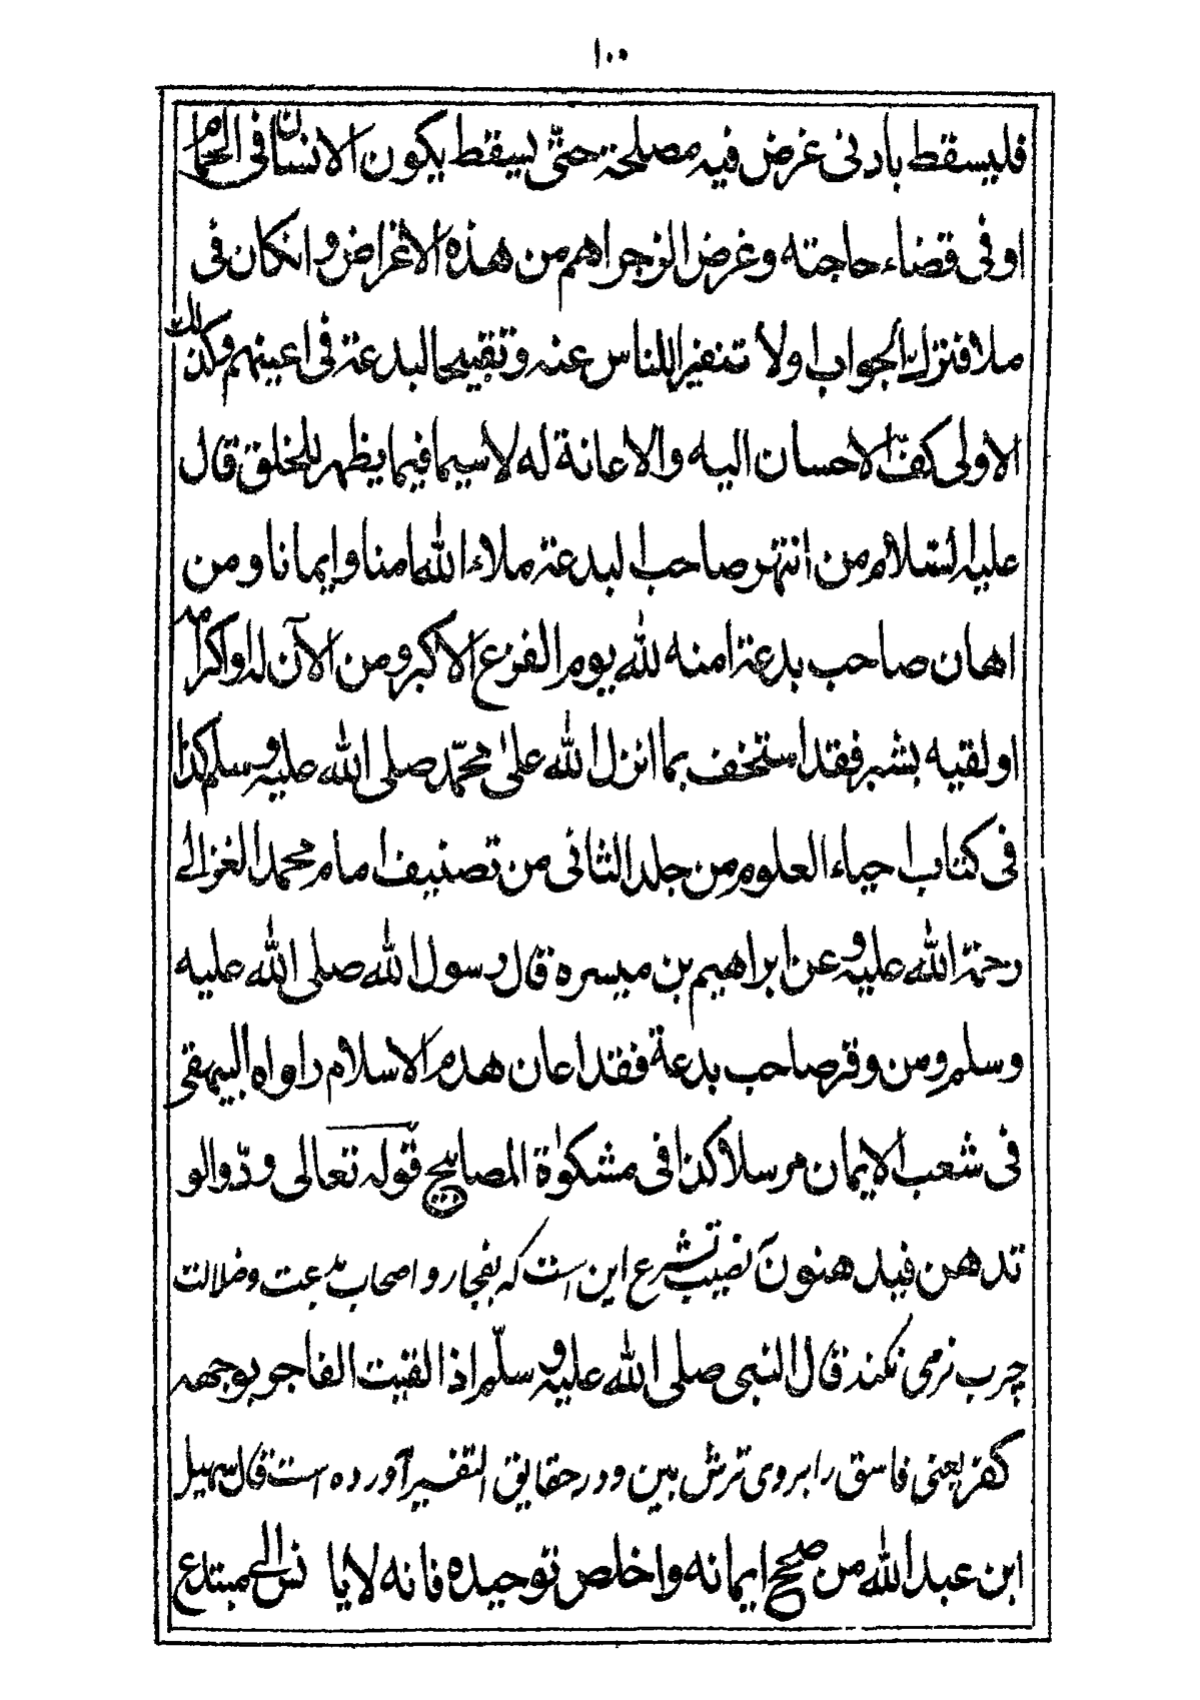 ١٠٠
فليسقط بادنى غرض فيه مصلحة حتى يسقط بكون الانسان فى الحمام
او فى قضاء حاجته وغرض الزجر اهم من هذه الاغراض وانكان فى
ملا فترك الجواب اولا تنفيرا للناس عنه وتقبيحا لبدعة فى اعينهم وكذلك
الاولى كفّ الاحسان اليه والاعانة له لاسيما فيما يظهر للخلق قال
عليه السّلام من انتهر صاحب البدعة ملاء الله امنا وايمانا ومن
اهان صاحب بدعة امنه لله يوم الفزع الاكبر ومن الآن له او اكرمه
او لقيه بشبر فقد استخف بما انزل الله على محمّد صلى الله عليه وسلم كذا
فى كتاب احياء العلوم من جلد الثانى من تصنيف امام محمد الغزالے
رحمة الله عليه وعن ابراهيم بن ميسره قال رسول الله صلى الله عليه
وسلم ومن وقر صاحب بدعة فقد اعان هدم الاسلام راواه البيهقى
فى شعب الايمان مرسلا كذا فى مشكوٰة المصابيح قوله تعالى ودّوا لو
تدهن فيدهنون نصيب تشرع اين است که بفجار و اصحاب بدعت و ضلالت
چرب نرمى نکند قال النبى صلى الله عليه وسلّم اذا لقيت الفاجر بوجهه
کفر يعنى فاسق را بروى ترش بين و در حقايق التفسير آورده است قال سهيل
ابن عبد الله من صحح ايمانه واخلص توحيده فانه لا يا نس الى مبتدع